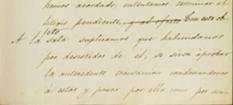 hemos acordado, intentamos terminar el
litigio pendiente, y al efecto Con este ob
jeto
A la sala suplicamos que habiendonos
por desistidos de él, se sirva aprobar
la antecedente transaccion condenandonos
á estar y pasar por ella